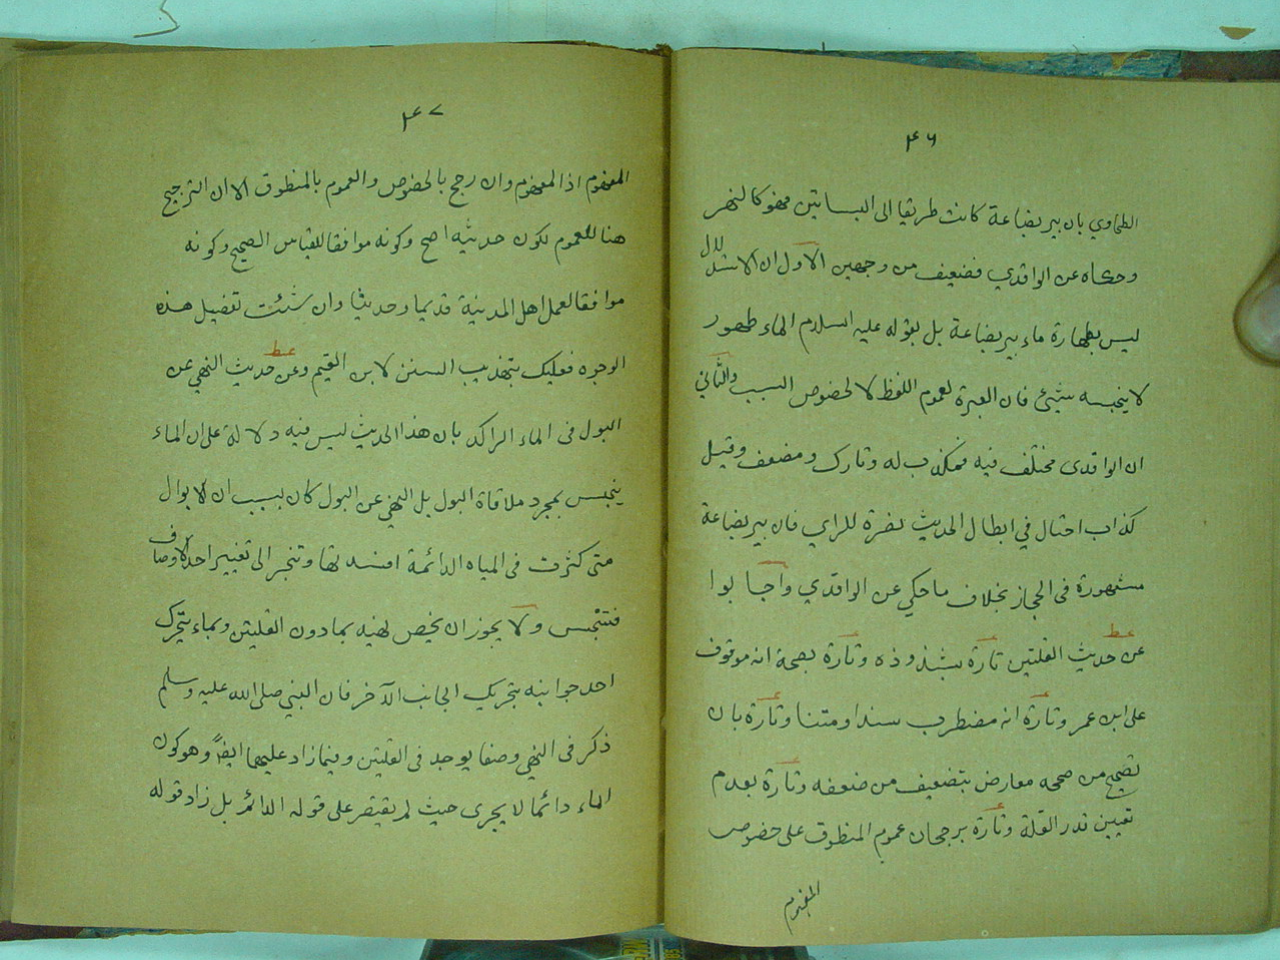 ۴۶
الطحاوي بان بير بضاعة كانت طريقا الى البساتين فهو كالنهر
وحكاه عن الواقدي فضعيف من وجهين الاول ان الاستدلال
ليس بطهارة ماء بير بضاعة بل بقوله عليه السلام الماء طهور
لا ينجسه شيئ فان العبرة لعموم اللفظ لا لخصوص السبب والثاني
ان الواقدى مختلف فيه فمكذب له وتارك ومضعف وقيل
كذاب احتال في ابطال الحديث نصرة للراي فان بير بضاعة
مشهورة فى الحجاز بخلاف ما حكي عن الواقدي واجابوا
عن حديث القلتين تارة بشذوذه وتارة بصحة انه موقوف
على ابن عمر وتارة انه مضطرب سندا ومتنا وتارة بان
تصحيح من صححه معارض بتضعيف من ضعفه وتارة بعدم
تعيين قدر القلة وتارة برجحان عموم المنطوق على خصوص
المفهوم
۴۷
المفهوم اذ المفهوم وان رجح بالخصوص والعموم بالمنطوق الا ان الترجيح
هنا للعموم لكون حديثه اصح وكونه موافقا للقياس الصحيح وكونه
موافقا لعمل اهل المدينة قديما وحديثا وان شئت تفصيل هذه
الوجوه فعليك بتهذيب السنن لابن القيم وعن حديث النهي عن
البول فى الماء الراكد بان هذا الحديث ليس فيه دلالة على ان الماء
ينجس بمجرد ملاقاة البول بل النهي عن البول كان بسبب ان الابوال
متى كثرت فى المياه الدائمة افسدتها وتنجر الى تغيير احد الاوصاف
فتتنجس ولا يجوز ان يخص نهيه بما دون القلتين وبماء يتحرك
احد جوانبه بتحريك الجانب الآخر فان النبي صلى الله عليه وسلم
ذكر فى النهي وصفا يوجد فى القلتين وفيما زاد عليهما ايضًا وهو كون
الماء دائما لا يجرى حيث لم يقتصر على قوله الدائم بل زاد قوله